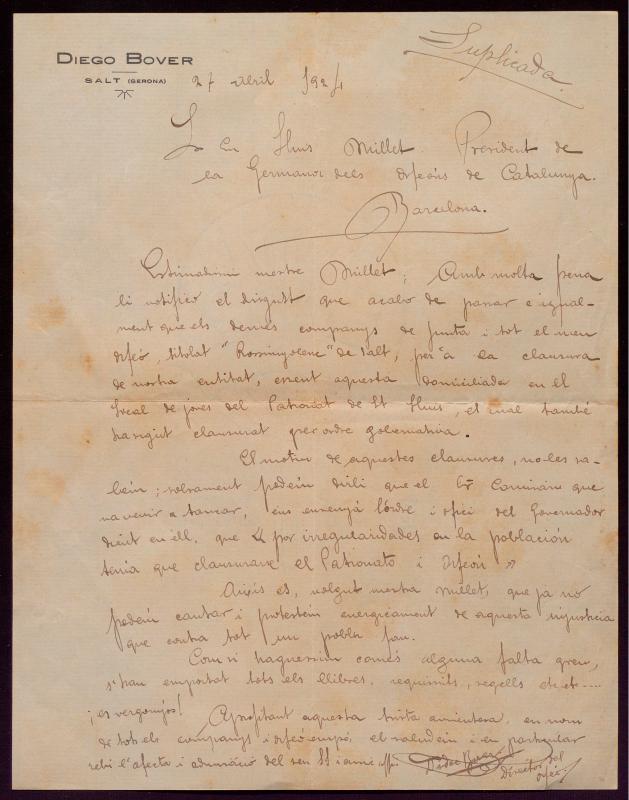 DIEGO BOVER
SALT (GERONA)
Duplicada
27 abril 1924
Sr. En Lluis Millet. President de
la Germanor dels Orfeóns de Catalunya.
Barcelona.
Estimadissim mestre Millet; Amb molta pena
li notifico el disgust que acabo de passar e igual-
ment que els demés companys de junta i tot el meu
orfeó, titolat "Rossinyolenc" de Salt, per a la clausura
de nostra entitat, essent aquesta domiciliada en el
local de joves del Patronat de St Lluis, el cual també
ha sigut clausurat per ordre gobernativa.
El motiu de aquestes clausures, no les sa-
bem; solsament podem dirli que el Sr Comissari que
va venir a tancar, ens ensenyá l'órdre i ofici del Governador
dient en éll, que "por irregularidades en la población
tenia que clausurarse el Patronato i Orfeón"
Aixis es, volgut mestre Millet, que ja no
podem cantar i protestem energicament de aquesta injusticia
que contra tot un poble fan.
Com si haguessim comés alguna falta greu,
s'han emportat tots els llibres, requissits, segells etc etc....
¡es vergonyós! Aprofitant aquesta trista avinentesa, en nom
de tots els companys i orfeó empó, el saludem i en particular
rebi l'afecte i admiració del seu St i amic affm
Didac Bover
Director del
Orfeó.